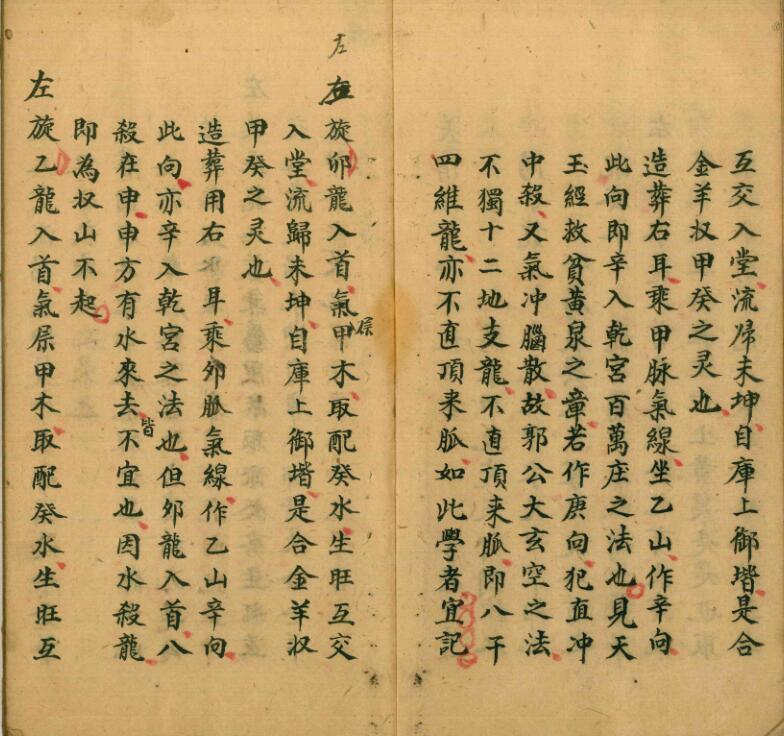 互交入堂流归未坤自庫上御堦是合
金羊収甲癸之灵也
造葬右耳乘甲脉氣線坐乙山作辛向
此向即辛入乾宮百萬庄之法也見天
玉經救貧黃泉之章若作庚向犯直冲
中殺又氣冲腦散故郭公大玄空之法
不獨十二地支龍不直頂来脈即八干
四維龍亦不直頂来脈如此學者宜記
左
右旋卯龍入首氣屬甲木取配癸水生旺互交
入堂流歸未坤自庫上御堦是合金羊収
甲癸之灵也
造葬用右耳乘夘脈氣線作乙山辛向
此向亦辛入乾宮之法也但夘龍入首八
殺在申申方有水來去皆不宜也因水殺龍
即為収山不起
左旋乙龍入首氣屬甲木取配癸水生旺互